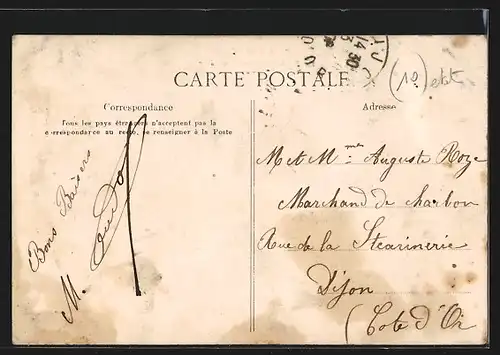 14 30
CARTE POSTALE
(10) etat
Correspondance
Tous les pays étrangers n'acceptent pas la
correspondance au recto, se renseigner à la Poste
Bons Baisers
M.
Adresse
M et Mme Auguste Roze
Marchand de charbon
Rue de la Stearinerie
Dijon
(Cote d'Or